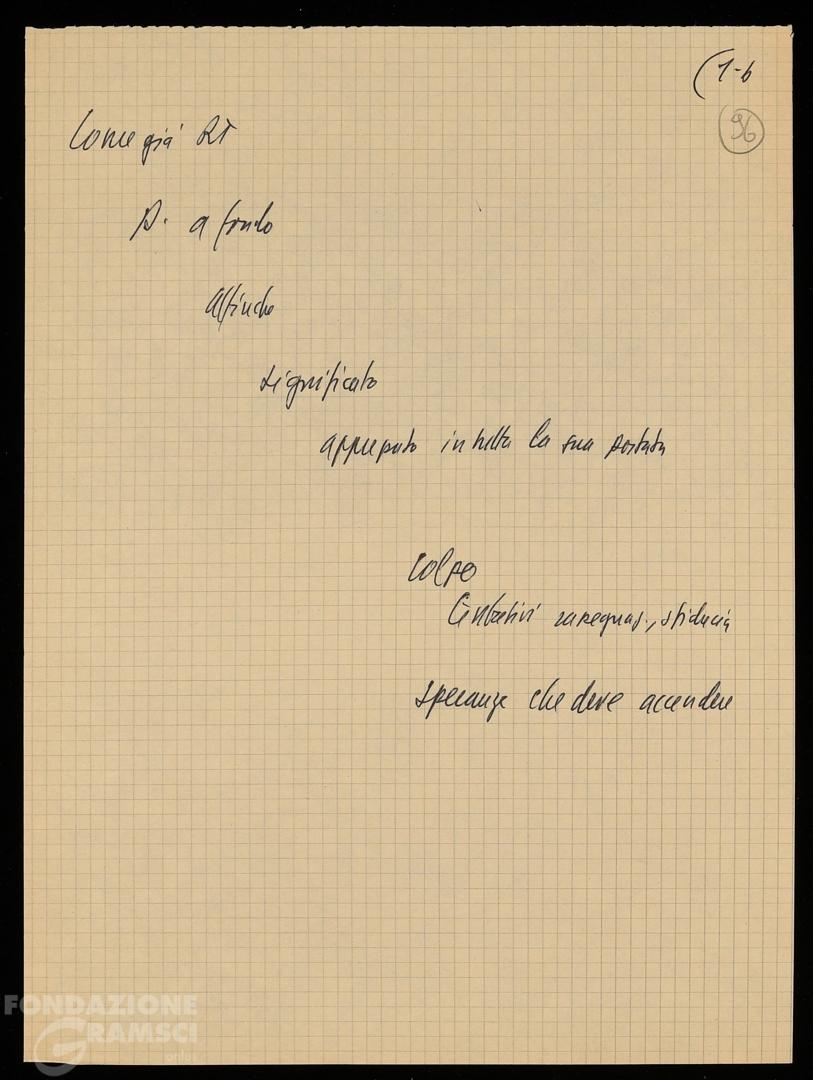 (1-b
96
Come già RT
A. a fondo
affinché
significato
appreso in tutta la sua portata
colpo
rassegnaz., sfiducia
speranze che deve accendere
FONDAZIONE
GRAMSCI
onlus